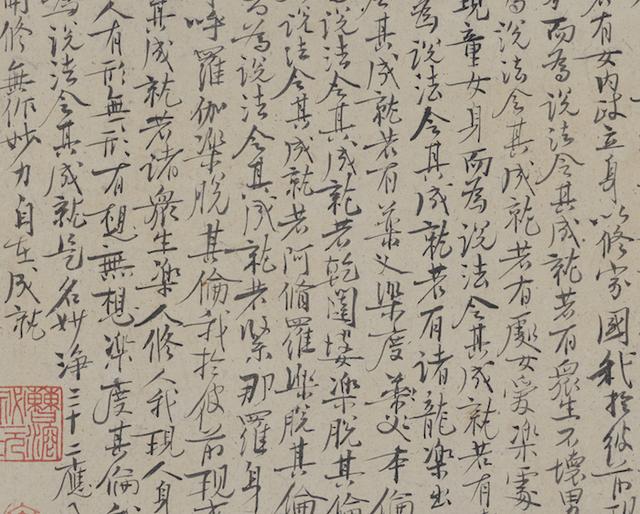 若有女內政立身以修家國我於彼前現
而為說法令其成就若有眾生不壞男
為說法令其成就若有處女愛樂處
現童女身而為說法令其成就若有
為說法令其成就若有諸龍樂出
其成就若有藥叉樂度藥叉本倫
說法令其成就若乾闥婆樂脫其倫
說法令其成就若阿脩羅樂脫其倫
為說法令其成就若緊那羅身
呼羅伽樂脫其倫我於彼前現
其成就若諸眾生樂人修人我現人身
人有形無形有想無想樂度其倫我
為說法令其成就是名妙淨三十二應入
修無作妙力自在成就